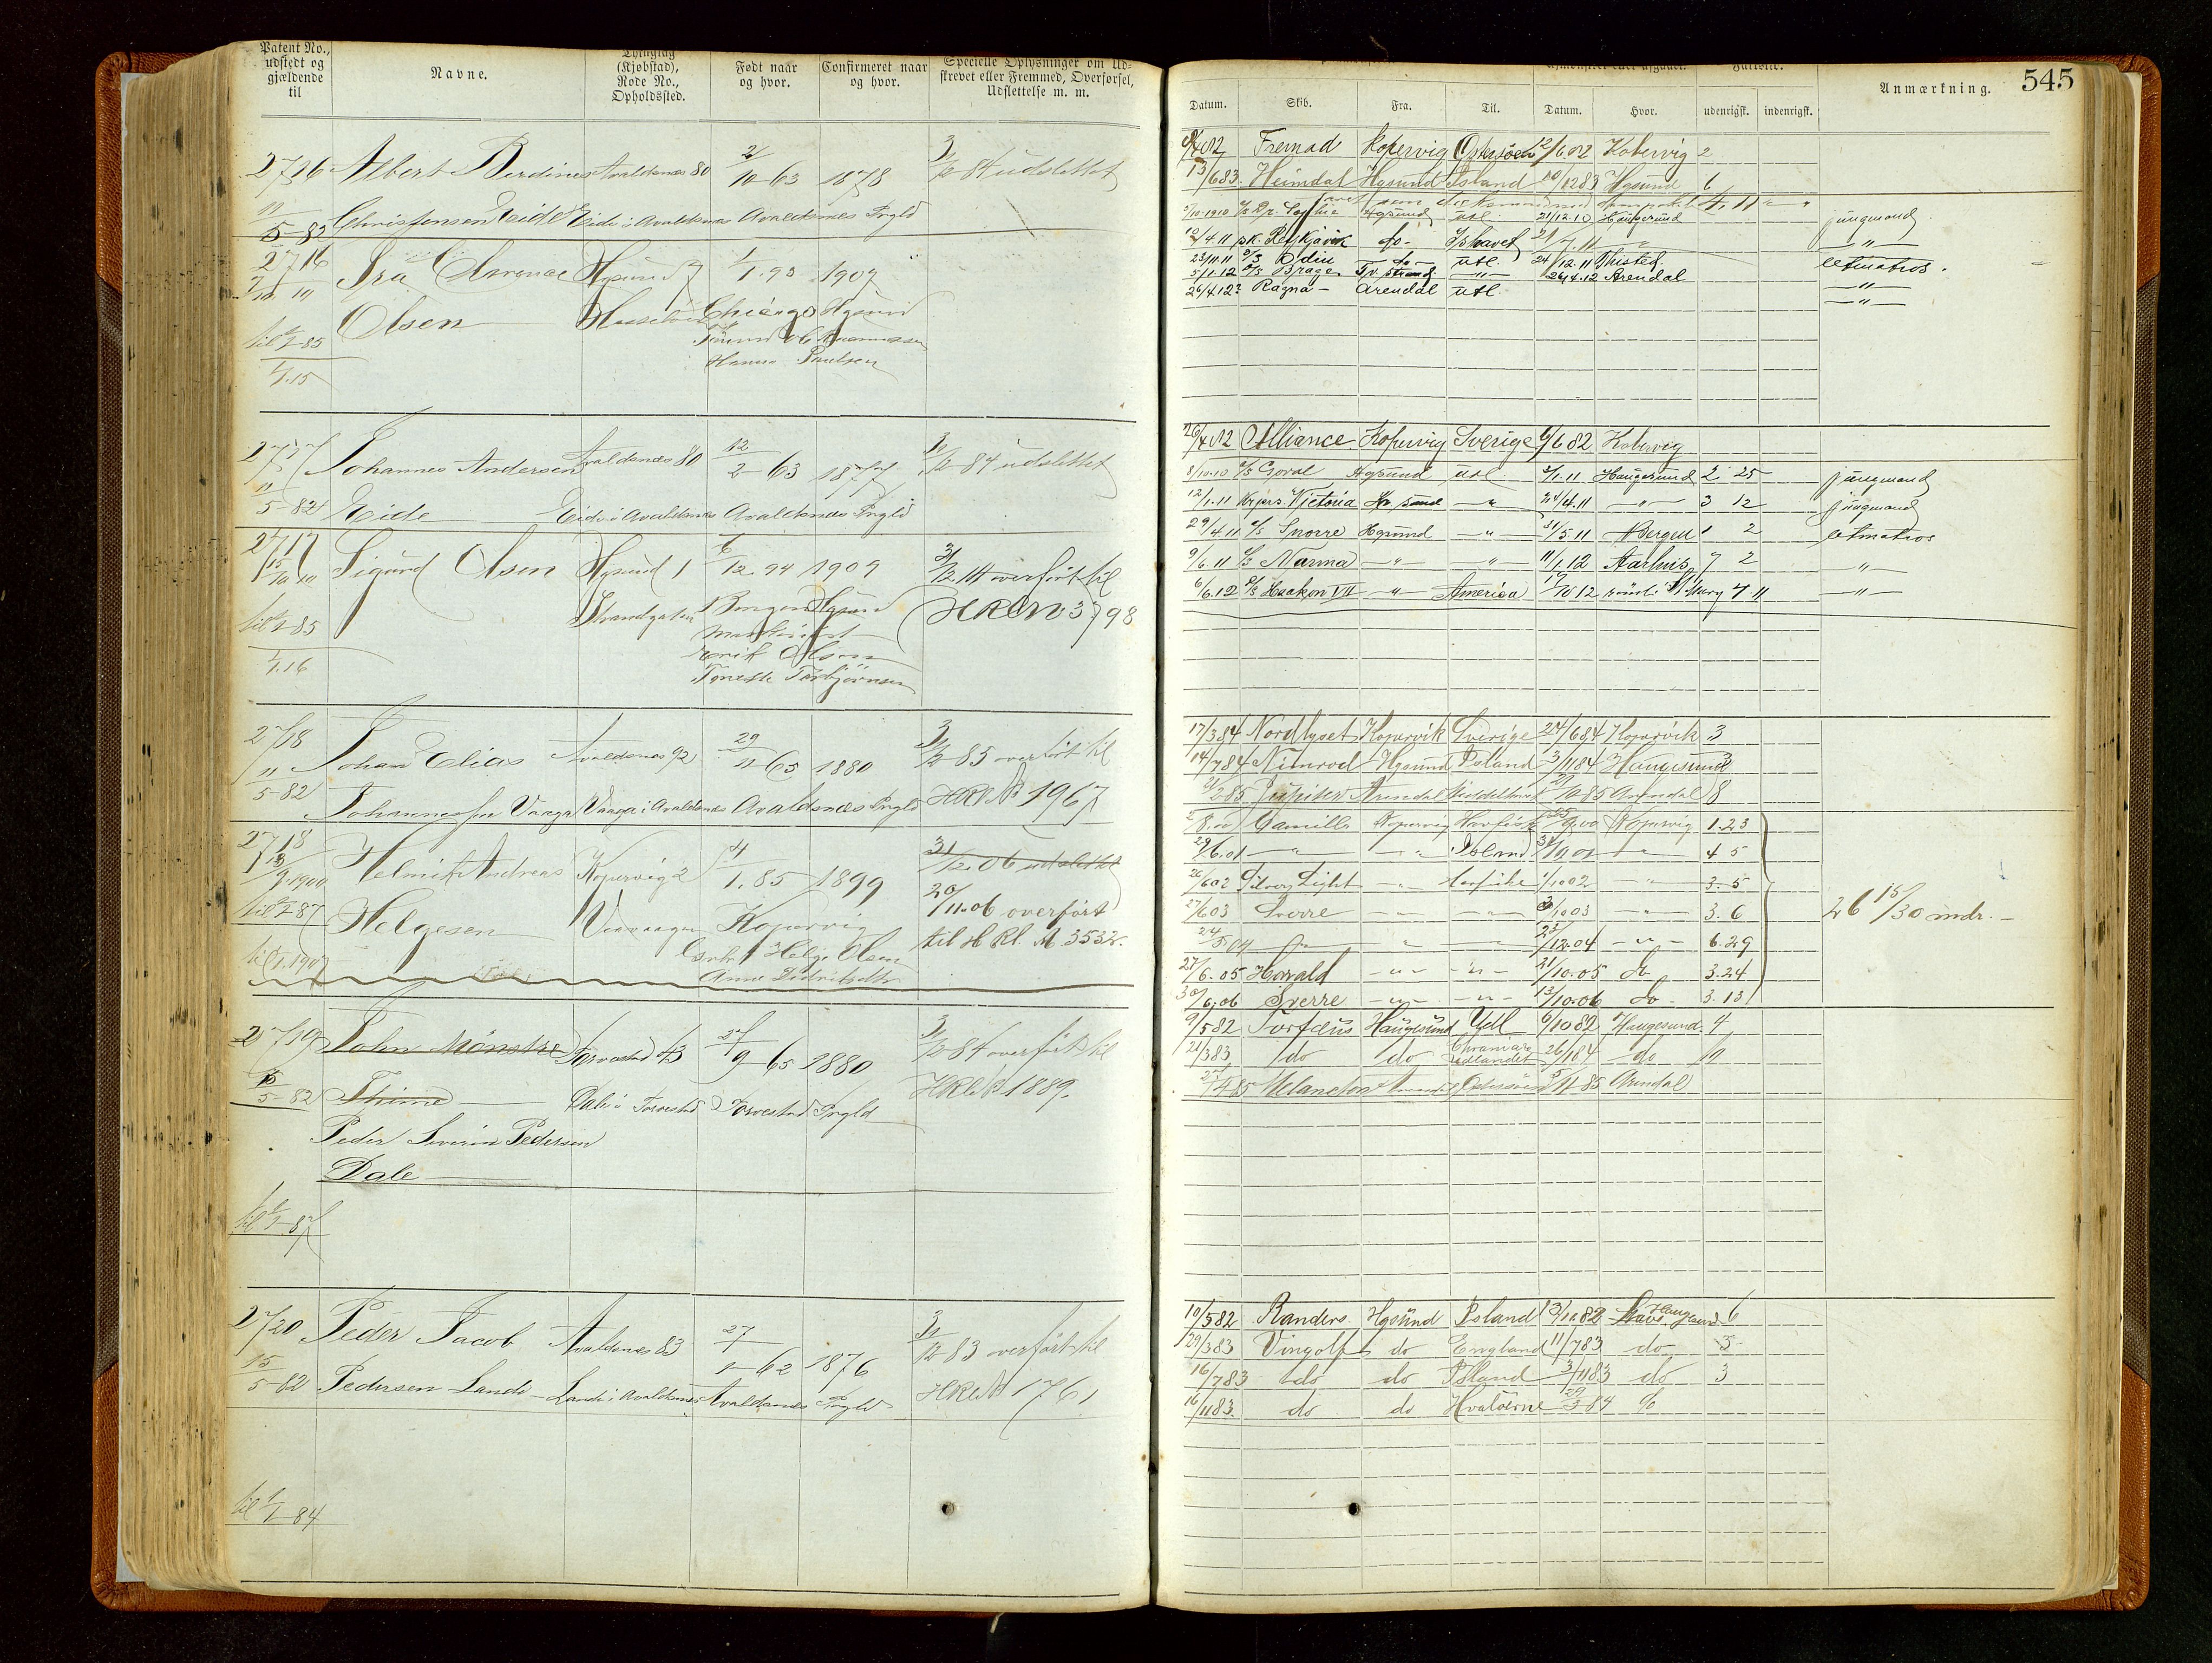 Patent No.,
udstedt og
gjældende
til
Navne.
(Kjøbstad),
Rode No.,
Opholdssted.
Født naar
og hvor.
Confirmeret naar
og hvor.
Specielle Oplysninger om Ud-
skrevet eller Fremmed, Overførsel,
Udslettelse m. m.
2716 Albert Berdines Avaldsnes 80 2/10-63 1878 31/12 84 udslettet
11/5-82 Christensen Eide Eide i Avaldsnes Avaldsnes Prgld
2716 Ira Hgsund 7 1/1.93 1907
Olsen Chicago Hgsund
til 1/1-85
Hanna Paulsen
1/1.15
2717 Johannes Andersen Avaldsnes 80 12/2-63 1877 31/12-84 udslettet
11/5-82 Eide Eide i Avaldsnes Avaldsnes Prgld
2717 Sigurd Olsen Hgsund 1 6/12.94 1909 31/12.14 overført til
15/10 10 Strandgaten Hgsund HRL No 3798
til 1/1-85
Erik Olsen
1/1.16 Torbjörnsen
2718 Johan Elias Avaldsnes 92 29/11 65 1880 31/12-85 overført til
11/5-82 Johannessen Vaaga Vaaga i Avaldsnes Avaldsnes Prgld HRL No 1967
2718 Helmik Andreas Kopervig 2 4/1.85 1899 31/12.06 udslettet
13/9.1900 20/11.06 overført
til 1/1-87 Helgesen Veavaagen Kopervig til H Rl. No 3532.
Helge Olsen
til 1/1.1907
2719 John Mønstre Torvestad 43 24/9-65 1880 31/12-84 overført til
15/5-82 Thime Dale i Torvestad Torvestad Prgld HRL No 1889.
Peder Severin Pedersen
Dale
til 1/1-87
2720 Peder Jacob Avaldsnes 83 27/1-62 1876 31/12-83 overført til
15/5-82 Pedersen Lande Lande i Avaldsnes Avaldsnes Prgld HRL No 1761
til 1/1-84
545
Datum.
Skib.
Fra.
Til.
Datum.
Hvor.
udenrigsk.
indenrigsk.
Anmærkning.
Fremad Kopervig Østersøen 12/6.82 Kobervig 2
13/6 83. Heimdal Hgsund Island 10/12 83 Hgsund 6
5/10.1910 Sophie Hgsund utl. 21/12.10 Haugesund jungmand
12/4.11 sk. Reykjavik do- Ishavet 21/7.11 —"—
23/10.11 D/S Odin do- utl. 24/12.11 Thisted. letmatros.
5/1.12 D/S Brage 26/4.12 Arendal —"—
26/4.12 Ragna Arendal utl. —"—
26/4 82 Alliance Kopervig Sverige 6/6 82 Kobervig
8/10.10 D/S Goval Hgsund utl 2/1.11 Haugesund 2 25 jungmand
12/1.11 Victoria Hgsund —"— 24/4.11 —"— 3 12 jungmand
29/4.11 D/S Snorre Hgsund —"— 31/5.11 Bergen 1 2 letmatros
9/6.11 D/S Norma —"— —"— 11/1.12 Aarhus 7 2 —"—
6/6.12 D/S Haakon VII —"— America 17/10 12 —"—
17/3 84 Nordlyset Kopervik Sverige 24/6 84 Kopervik 3
14/7 84 Nimrod Hgsund Island 3/11 84 Haugesund
Jupiter Arendal Arendal 8
8.00 Gamille Kopervig Havfiske 25/9.00 Kopervig 1.23
29/6.01 —"— —"— Island —"— 4 5
26/6 02 Silvery Light —"— Havfiske 1/10 02 —"— 3.5
27/6 03 Sverre —"— —"— 3/10 03 —"— 3.6
24/5 04 —"— —"— 23/12.04 —"— 6.29
26 15/30 mdr.
27/6.05 Harald —"— —"— 21/10.05 do 3.24
30/6.06 Sverre —"— —"— 13/10.06 do 3.13
9/5 82 Torfæus Haugesund Udl 6/10 82 Haugesund 4
21/3 83 do do udlandet 26/1 84 do 9
27/4 85 Melancton Østersøen 5/11 85 Arendal
10/5 82 Randers Hgsund Island 13/10 82 Haugesund 6
29/3 83 Vingolf do England 11/7 83 do 3
16/7 83 do do Island 3/11 83 do 3
16/11 83. do do Hvaløerne 29/3 84 do